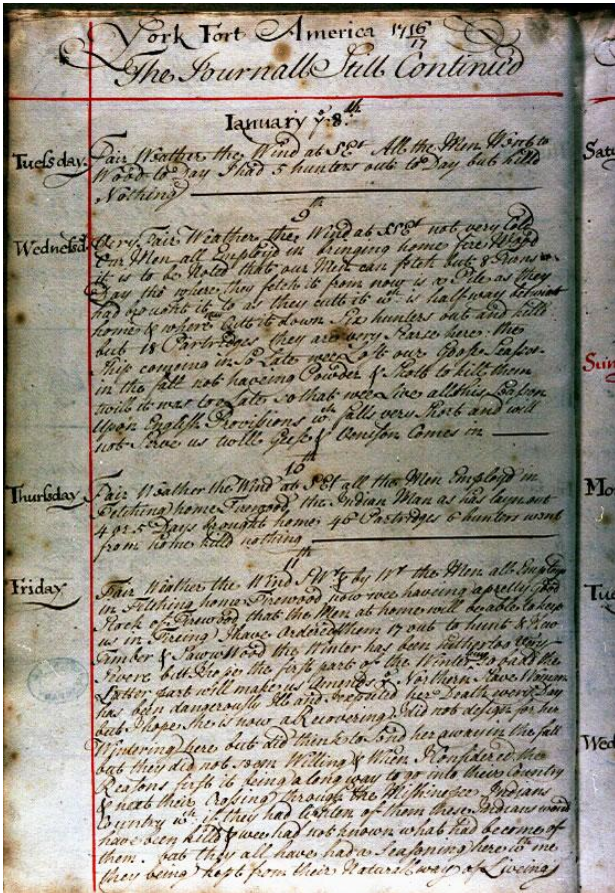 York Fort America 1716/17
The Journall Still Continued
January ye 8th
Tuesday. Fair Weather the Wind at SEt All the Men Went to
Wood to Day I had 5 hunters out to Day but killd
Nothing
9th
Wednesd Very Fair Weather the Wind at SSEt not very Cold
Our Men all Employd in bringing home fire Wood
it is to be Noted that our Men can fetch but 8 Runs a
Day tho where they fetch it from now is a Pile as they
had brought it to as they cutt it wch is halfway betwixt
home & where Cutt it down Six hunters out and killd
but 18 Partridges they are very Scarse here the
Ship comeing in So Late wee Lost our Goose Season
in the fall not haveing Powder & Shott to kill them
twill it was to Late so that wee Live all this Season
Upon English Provisions wch falls very Short and will
not Serve us twill Geese & Venison Comes in
10th
Thursday Fair Weather the Wind at SEt all the Men Employd in
Fetching home Firewood, the Indian Man as has layn out
4 or 5 Days brought home 46 Partridges 6 hunters went
from home killd nothing
11th
Friday Fair Weather the Wind SWt & by Wt the Men all Employd
in Fetching home Firewood now wee haveing a pretty good
Stock of Firewood that the Men at home will be able to keep
us in Fireing I have Ordered them 17 out to hunt &
Timber & Saww Wood the Winter has been hitherto Very
Severe but I hope the first part of the Winter being So bad the
Latter part will make us Amends ye Northern Slave Woman
has been dangerously Ill and I expected her Death every Day
but I hope She is now a Recovering I did not design for her
Wintering here but did think to Send her away in the fall
but they did not Seem Willing & When I Considered the
Reasons first it being a long way to go into theire Country
& next their Crossing through the Mishinepee Indians
Country wch if they had Gotten of them these Indians would
have been killd & wee had not known what had become of
them. but they all have had a Seasoning here wth me
they being kept from their Naturall way of Liveing
Satu
Sun
Mo
Tue
Wed